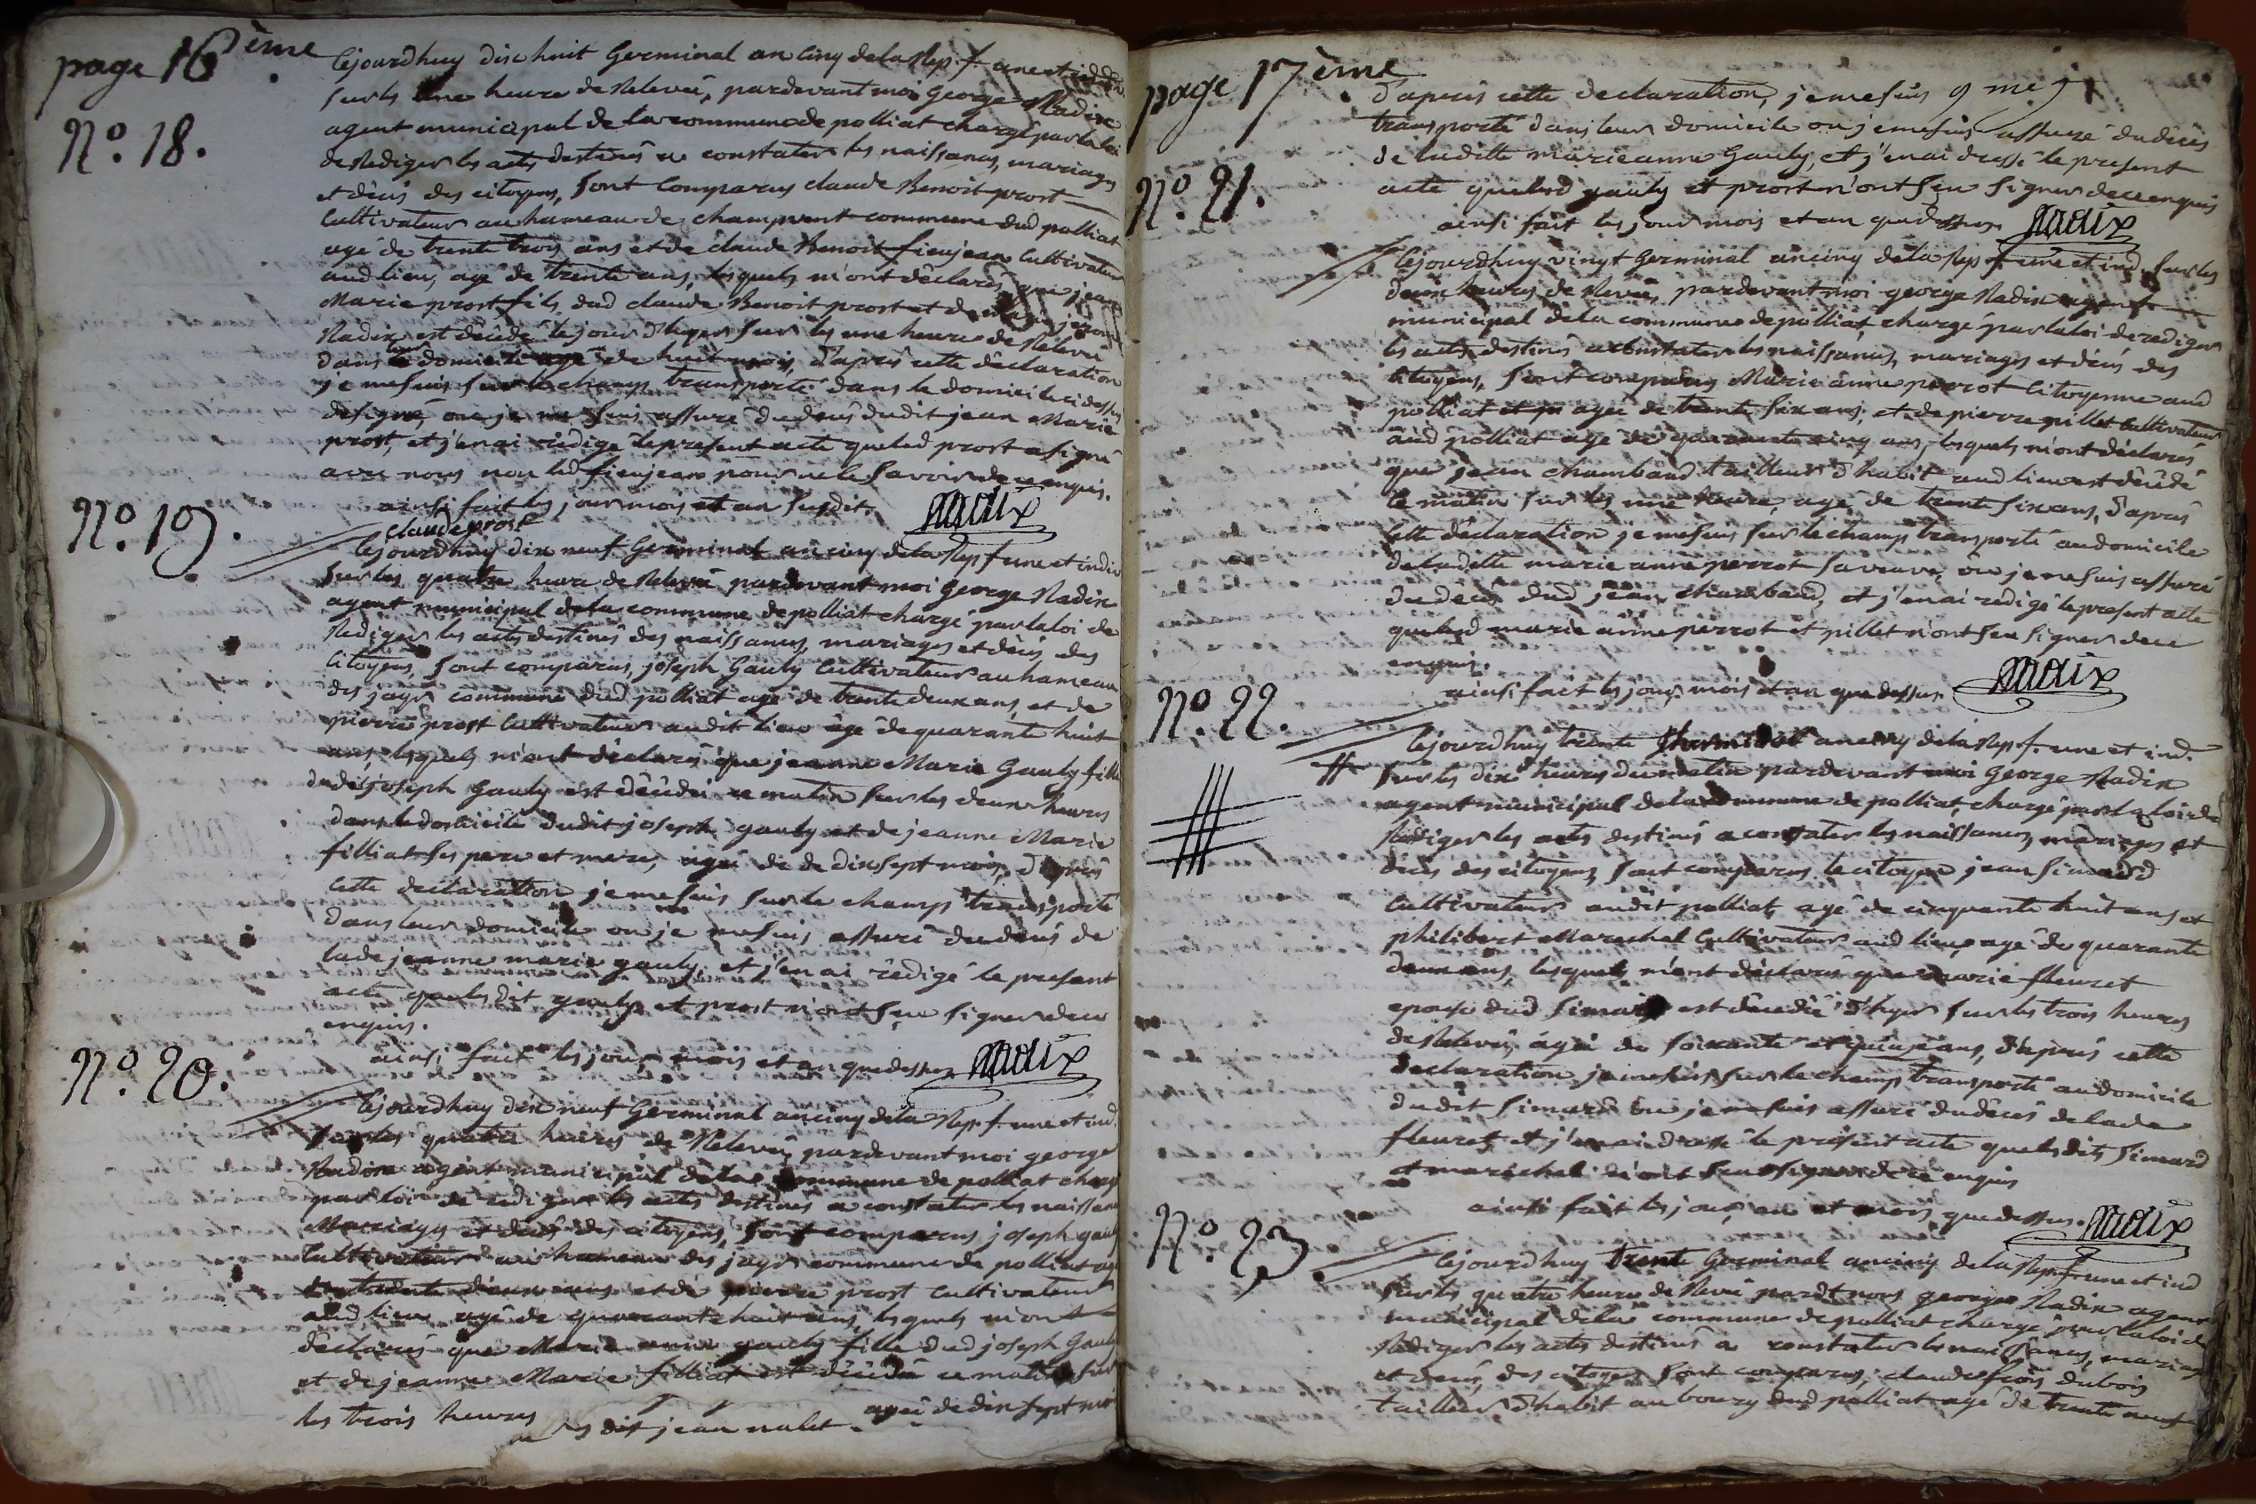 page 16ème
Cejourdhuy dix huit Germinal an cinq de la Rep. f. une et indi.
sur les une heure de Relevée, pardevant moi George Nadix
Nº. 18.
agent municipal de la commune de polliat chargé par la loi
de Rediger les actes destinés a constater les naissances, mariages
et décés des citoyens, sont Comparus claude Benoit prost
Cultivateur au hameau de champvent commune dud polliat
agé de trente trois ans et de claude Benoit fieujean Cultivateur
aud lieu, agé de trente ans, lesquels m'ont déclarés que jean
Marie prost fils dud claude Benoit prost et de
Nadix est décédé le jour d'hyer sur les une heure de Relevée
dans domicile agé de huit mois, d'aprés cette déclaration
je me suis sur le champ transporté dans le domicile ci dessus
designé, ou je me suis assuré du décés dudit jean Marie
prost, et j'en ai rédigé le present acte que led prost a signé
avec nous non led fieujean pour ne le savoir de ce enquis.
ainsi fait les jour mois et an susdits
claude prost
Nadix
Nº. 19.
Cejourdhuy dix neuf Germinal an cinq de la Rep f. une et indiv
sur les quatre heure de Relevée pardevant moi George Nadix
agent municipal de la commune de polliat chargé par la loi de
Rediger les actes destinés des naissances, mariages et décés des
Citoyens, sont comparus, joseph Gauly Cultivateur au hameau
des jayr commune dud polliat agé de trente deux ans, et de
pierre prost Cultivateur audit lieu agé de quarante huit
ans, lesquels m'ont déclaré que jeanne Marie Gauly fille
dudit joseph Gauly est décédée ce matin sur les deux heures
dans le domicile dudit joseph gauly et de jeanne Marie
filliat ses pere et mere, agée de de dix sept mois, d'aprés
cette declaration je me suis sur le champ transporté
dans leur domicile ou je me suis assuré du décés de
lade jeanne marie gauly, et j'en ai rédigé le present
acte que les dit gauly et prost n'ont seu signer de ce
enquis.
ainsi fait les jour, mois et an que dessus Nadix
Nº. 20.
Cejourdhuy dix neuf Germinal an cinq de la Rep. f. une et ind.
sur les quatre heures de Relevée, pardevant moi george
Nadix agent municipal de la commune de polliat chargé
par loi de rediger les actes destinés a constater les naissances
Mariages et décés des citoyens, sont comparus joseph gauly
Cultivateur au hameau des jayr commune de polliat agé
de trente deux ans et de pierre prost Cultivateur
aud lieu agé de quarante huit ans, lesquels m'ont
déclarés que Marie anne gauly fille dud joseph Gauly
et de jeanne Marie filliat est décédée ce matin sur
les trois heures agée de dix sept mois
dit jean nalet
page 17ème
d'aprés cette declaration, je me suis
transporté dans leur domicile ou je me suis assuré du décés
de laditte marie anne Gauly, et j'en ai dressé le present
Nº. 21.
acte que led gauly et prost n'ont seu signer de ce enquis
ainsi fait les jour mois et an que dessus. Nadix
Cejourdhuy vingt Germinal an cinq de la Rep f une et ind. sur les
deux heures de Relevée, pardevant moi george Nadix agent
municipal de la commune de polliat, chargé par la loi de rediger
les actes destinés a constater les naissances, mariages et décés des
Citoyens, sont comparus Marie anne perrot Citoyenne aud
polliat agée de trente six ans, et de pierre pillet Cultivateur
aud polliat agé de quarante cinq ans, lesquels m'ont déclarés
que jean chambaud tailleur d'habit aud lieu est décédé
le matin sur les une heure, agé de trente six ans, d'aprés
cette déclaration je me suis sur le champ transporté au domicile
de laditte marie anne perrot sa veuve, ou je me suis assuré
du décés dud jean chambaud, et j'en ai redigé le present acte
que led marie anne perrot et pillet n'ont seu signer de ce
enquis.
ainsi fait les jour, mois et an que dessus Nadix
Nº. 22.
Cejourdhuy trente an cinq de la Rep. f. une et ind.
sur les dix heures du matin pardevant moi George Nadix
agent municipal de la commune de polliat, chargé par la loi de
Rediger les actes destinés a constater les naissances, mariages et
décés des citoyens, sont comparus le citoyen jean simard
Cultivateur audit polliat, agé de cinquante huit ans, et
philibert Marechal Cultivateur aud lieu, agé de quarante
deux ans, lesquels m'ont déclaré que marie fleuret
epouse dud simard est décédée d'hyer sur les trois heures
de Relevée, agée de soixante et quinze ans, d'aprés cette
declaration je me suis sur le champ transporté au domicile
dudit simard ou je me suis assuré du décés de lade
fleuret, et j'en ai dressé le présent acte que lesdits simard
et maréchal n'ont seu signer de ce enquis
ainsi fait les jour, an et mois, que dessus. Nadix
Nº. 23
Cejourdhuy trente Germinal an cinq de la Rep f une et ind
sur les quatre heures de Relevée pardt nous george Nadix agent
municipal de la commune de polliat chargé par la loi de
Rediger les actes destinés a constater les naissances, mariages
et décés, des citoyens sont comparus, claude frois dubois
tailleur d'habit au bourg dud polliat agé de trente neuf